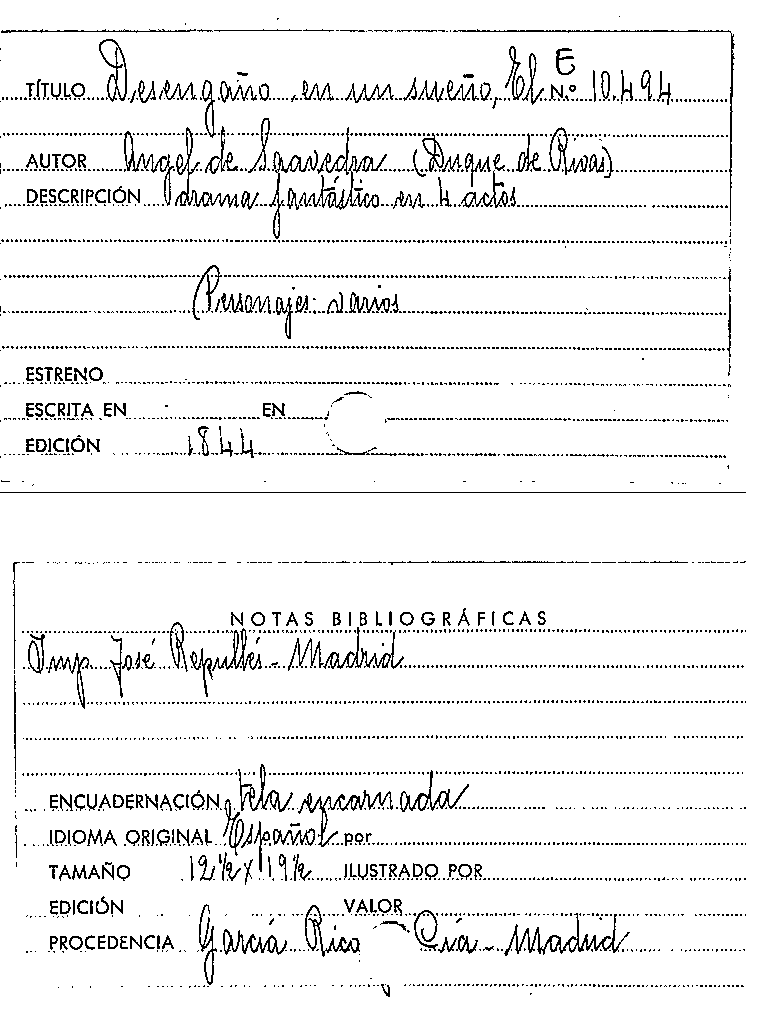 E
TÍTULO Desengaño en un sueño, El N.º 10.494
AUTOR Angel de Saavedra (Duque de Rivas)
DESCRIPCIÓN drama fantástico en 4 actos
Personajes: varios
ESTRENO
ESCRITA EN EN
EDICIÓN 1844
NOTAS BIBLIOGRÁFICAS
Imp. José Repullés - Madrid
ENCUADERNACIÓN tela encarnada
IDIOMA ORIGINAL Español por
TAMAÑO 12 ½ x 19 ½ ILUSTRADO POR
EDICIÓN VALOR
PROCEDENCIA García Rico - Cía - Madrid